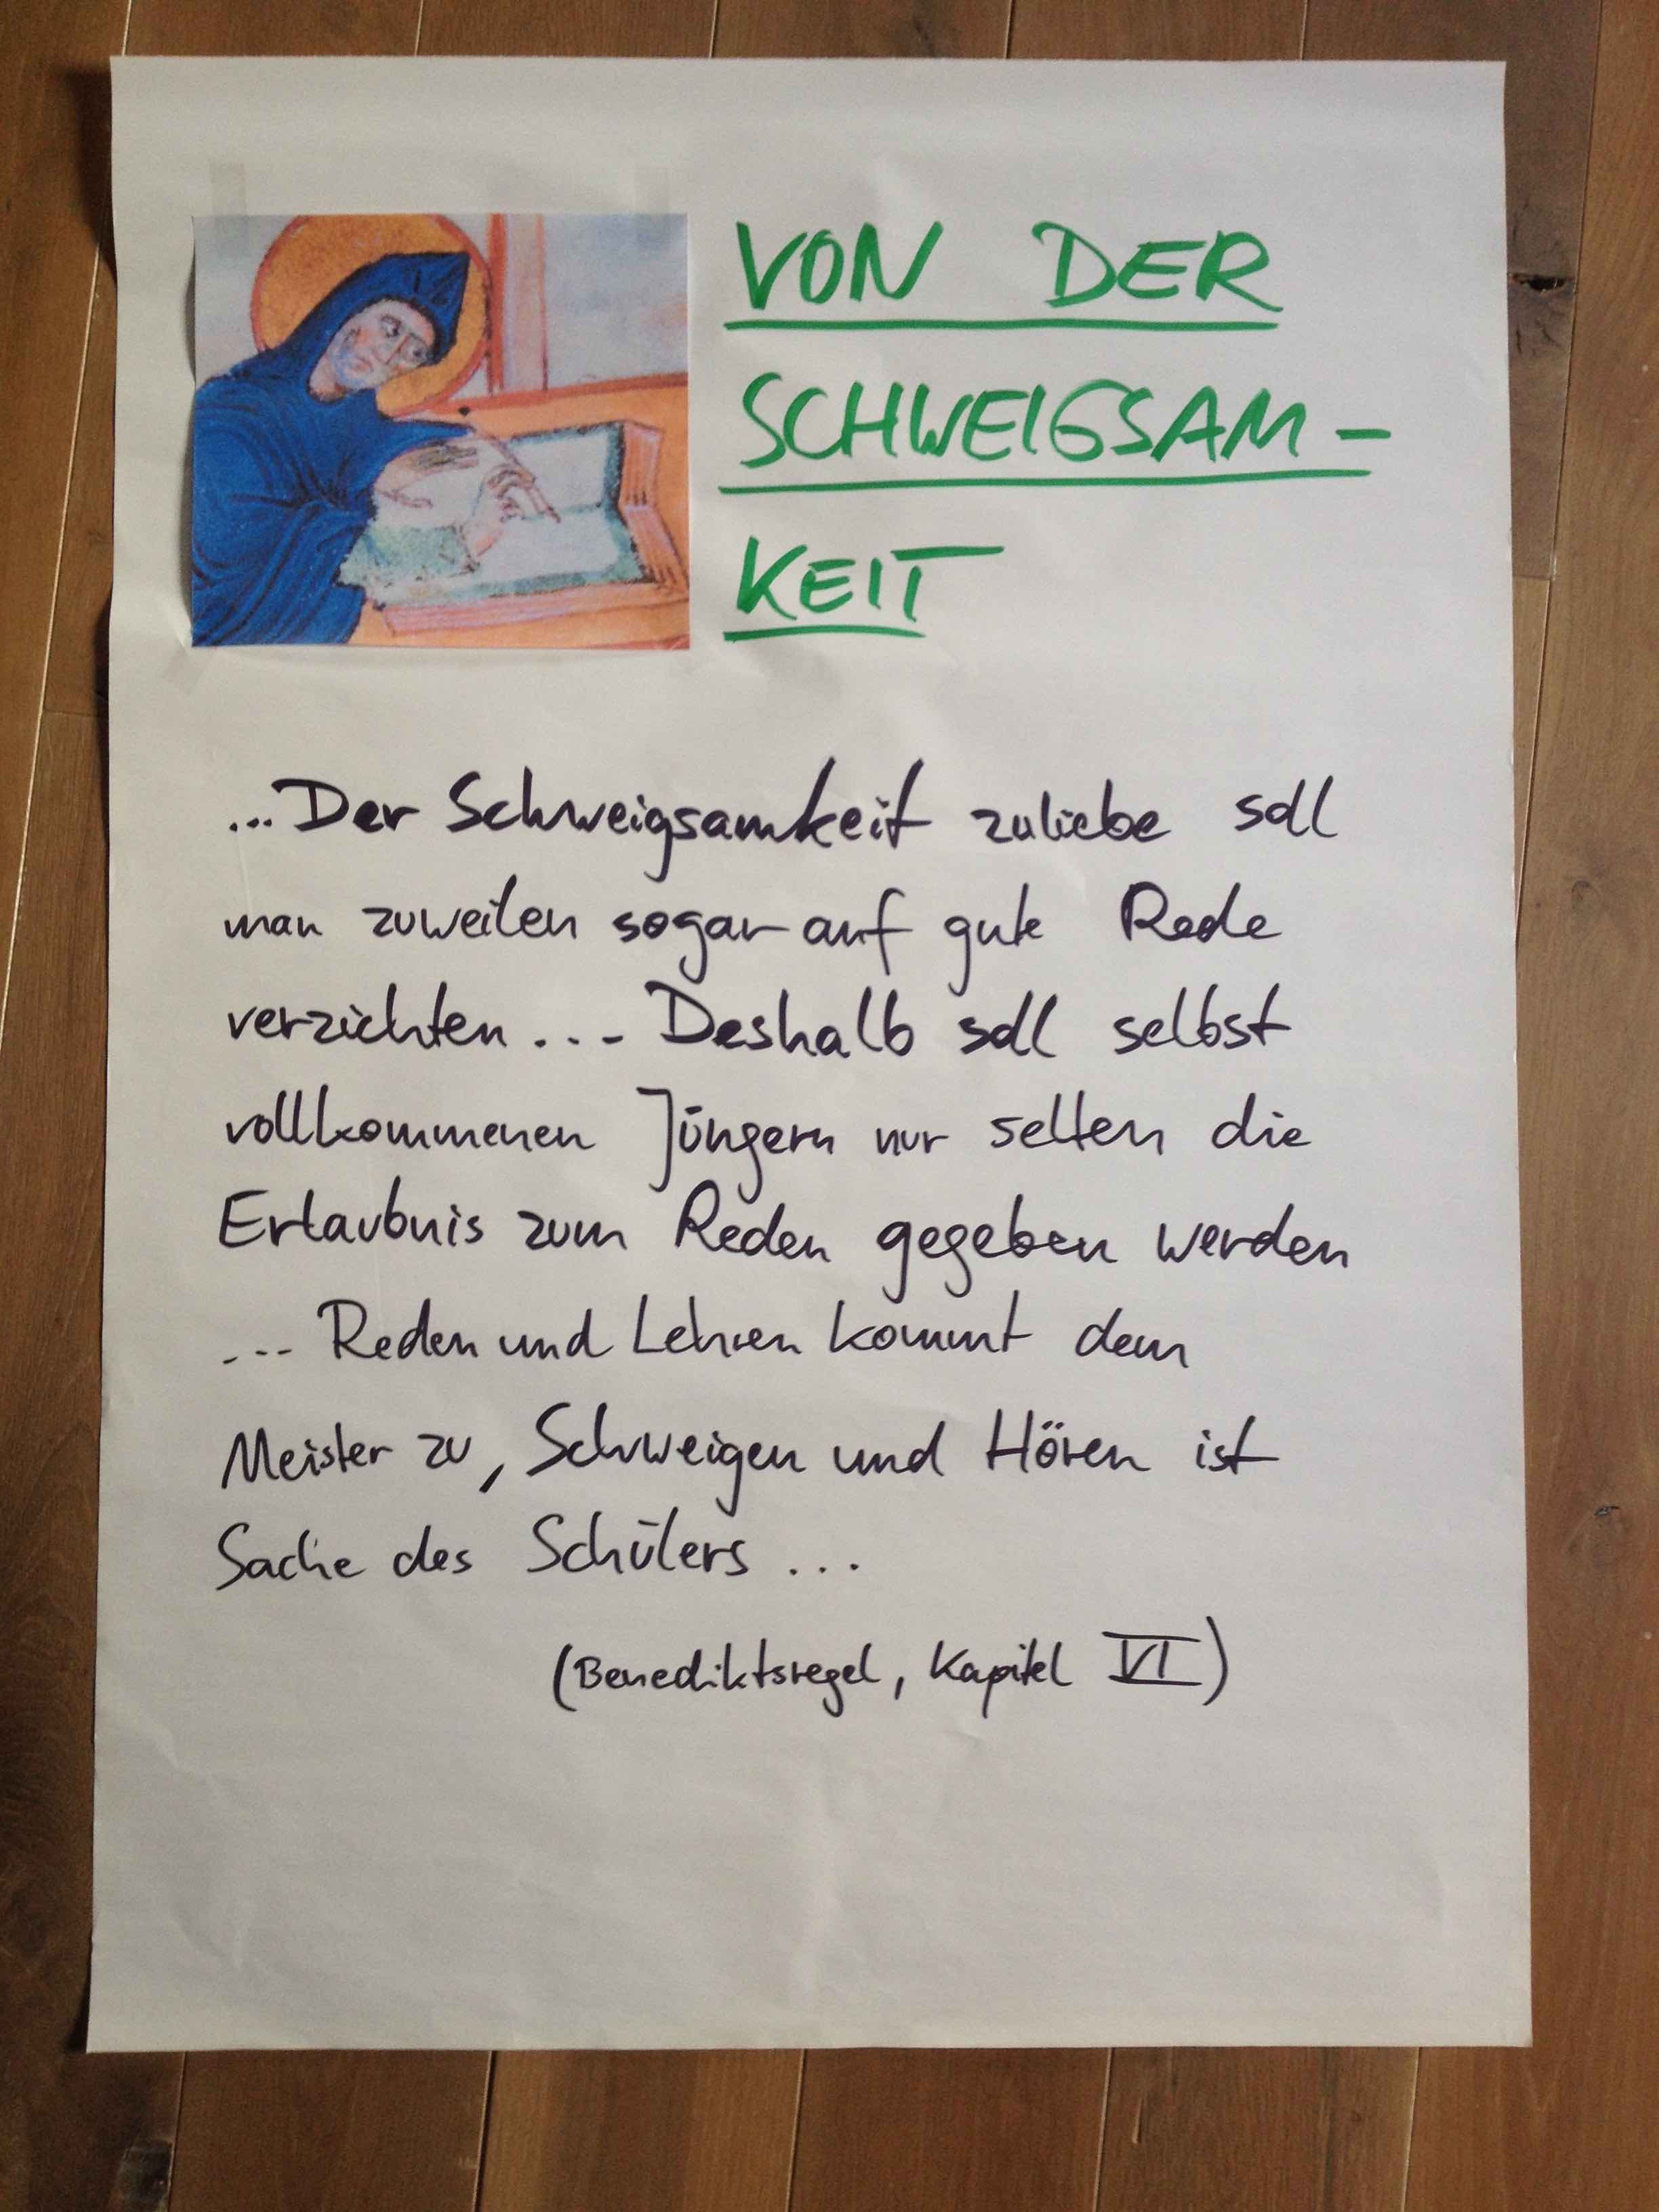 VON DER
SCHWEIGSAM-
KEIT
...Der Schweigsamkeit zuliebe soll
man zuweilen sogar auf gute Rede
verzichten... Deshalb soll selbst
vollkommenen Jüngern nur selten die
Erlaubnis zum Reden gegeben werden
... Reden und Lehren kommt dem
Meister zu, Schweigen und Hören ist
Sache des Schülers ...
(Benediktsregel, Kapitel VI)